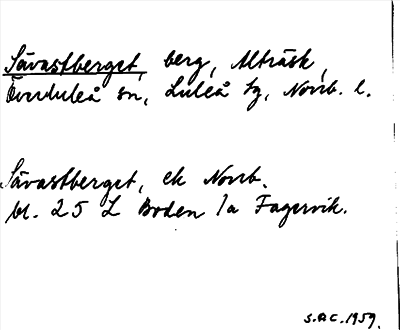 Sävastberget, berg, Alträsk,
Överluleå sn, Luleå tg, Norrb. l.
Sävastberget, ek Norrb.
bl. 25 L Boden la Fagervik.
S.Ä C. 1959.